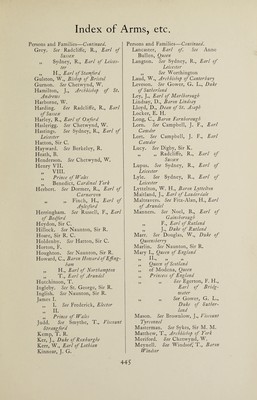 Index of Arms, etc.
Persons and Families—Continued.
Grey. See Radcliffe, R., Earl of Sussex
„ Sydney, R., Earl of Leicester
„ H., Earl of Stamford
Gulston, W., Bishop of Bristol
Guzman. See Chetwynd, W.
Hamilton, J., Archbishop of St. Andrews
Harborne, W.
Harding. See Radcliffe, R., Earl of Sussex
Harley, R., Earl of Oxford
Haselerigg. See Chetwynd, W.
Hastings. See Sydney, R., Earl of Leicester
Hatton, Sir C.
Hayward. See Berkeley, R.
Heath, R.
Henderson. See Chetwynd, W.
Henry VII.
„ VIII.
„ Prince of Wales
„ Benedict, Cardinal York
Herbert. See Dormer, R., Earl of Carnarvon
„ „ Finch, H., Earl of Aylesford
Herringham. See Russell, F., Earl of Bedford
Heydon, Sir C.
Hillock. See Naunton, Sir R.
Hoare, Sir R. C.
Holdenby. See Hatton, Sir C.
Horton, F.
Houghton. See Naunton, Sir R.
Howard, C., Baron Howard of Effingham
„ H., Earl of Northampton
„ T., Earl of Arundel
Hutchinson, T.
Ingleby. See St. George, Sir R.
English. See Naunton, Sir R.
James I.
„ I. See Frederick, Elector
„ II.
„ Prince of Wales
Judd. See Smythe, T., Viscount Strangford
Kemp, T. R.
Ker, J., Duke of Roxburghe
Kerr, W., Earl of Lothian
Kinnear, J. G.
Persons and Families—Continued.
Lancaster, Earl of. See Anne Bullen, Queen
Langton. See Sydney, R., Earl of Leicester
„ See Worthington
Laud, W., Archbishop of Canterbury
Leveson. See Gower, G. L., Duke of Sutherland
Ley, J., Earl of Marlborough
Lindsay, D., Baron Lindsay
Lloyd, D., Dean of St. Asaph
Locker, E. H.
Long, C., Baron Farnborough
Lorn. See Campbell, J. F., Earl Cawdor
Lort. See Campbell, J. F., Earl Cawdor
Lucy. See Digby, Sir K.
„ „ Radcliffe, R., Earl of Sussex
Lupus. See Sydney, R., Earl of Leicester
Lyle. See Sydney, R., Earl of Leicester
Lyttelton, W. H., Baron Lyttelton
Maitland, J., Earl of Lauderdale
Maltravers. See Fitz-Alan, H., Earl of Arundel
Manners. See Noel, B., Earl of Gainsborough
„ F., Earl of Rutland
„ J., Duke of Rutland
Mar. See Douglas, W., Duke of Queensberry
Marlin. See Naunton, Sir R.
Mary I., Queen of England
„ II., „ „
„ Queen of Scotland
„ of Modena, Queen
„ Princess of England
„ „ See Egerton, F. H., Earl of Bridgewater
„ „ See Gower, G. L., Duke of Sutherland
Mason. See Brownlow, J., Viscount Tyrconnel
Masterman. See Sykes, Sir M. M.
Matthew, T., Archbishop of York
Mettford. See Chetwynd, W.
Meynell. See Windsor, T., Baron Windsor
445